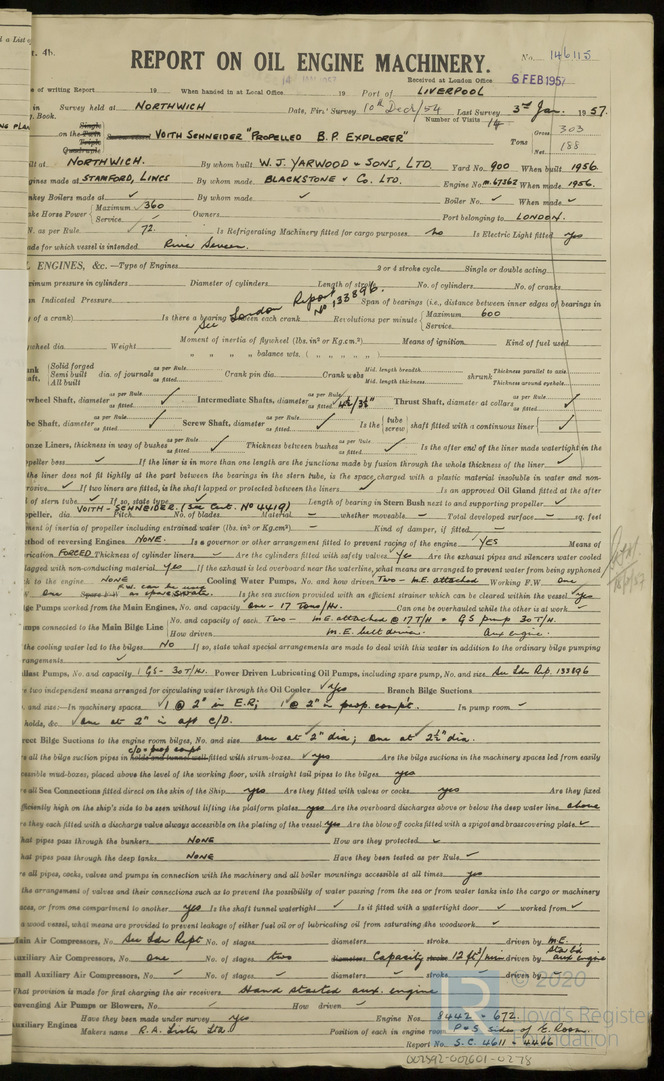 d a List of
t. 4b.
REPORT ON OIL ENGINE MACHINERY.
No. 146115
Received at London Office 6 FEB 1957
e of writing Report 19 When handed in at Local Office 19 Port of LIVERPOOL
in Survey held at NORTHWICH Date, First Survey 10th Decr/54 Last Survey 3rd Jan. 1957.
g. Book. Number of Visits 14
NG PLAN
on the Single Twin Triple Quadruple Screw vessel VOITH SCHNEIDER "PROPELLED B.P. EXPLORER" Tons Gross 303 Net 188
ilt at NORTHWICH. By whom built W. J. YARWOOD & SONS, LTD. Yard No. 900 When built 1956.
gines made at STAMFORD, LINCS By whom made BLACKSTONE & Co. LTD. Engine No. M.67362 When made 1956.
nkey Boilers made at ✓ By whom made ✓ Boiler No. ✓ When made ✓
ake Horse Power Maximum 360 Service ✓ Owners Port belonging to LONDON.
N. as per Rule 72. Is Refrigerating Machinery fitted for cargo purposes. No Is Electric Light fitted yes
ade for which vessel is intended. River Severn.
L ENGINES, &c. —Type of Engines 2 or 4 stroke cycle Single or double acting
aximum pressure in cylinders Diameter of cylinders Length of stroke No. of cylinders No. of cranks
an Indicated Pressure See London Report No 133896. Span of bearings (i.e., distance between inner edges of bearings in
y of a crank) Is there a bearing between each crank Revolutions per minute Maximum 600 Service
wheel dia. Weight Moment of inertia of flywheel (lbs. in² or Kg.cm.²) Means of ignition Kind of fuel used
" " " balance wts. ( " " " " )
ank haft, Solid forged Semi built All built dia. of journals as per Rule as fitted Crank pin dia. Crank webs Mid. length breadth Mid. length thickness shrunk Thickness parallel to axis Thickness around eyehole
wheel Shaft, diameter as per Rule as fitted ✓ Intermediate Shafts, diameter as per Rule as fitted 4½/3½" Thrust Shaft, diameter at collars as per Rule as fitted ✓
be Shaft, diameter as per Rule as fitted ✓ Screw Shaft, diameter as per Rule as fitted ✓ Is the tube screw shaft fitted with a continuous liner ✓
onze Liners, thickness in way of bushes as per Rule as fitted ✓ Thickness between bushes as per Rule as fitted ✓ Is the after end of the liner made watertight in the
opeller boss ✓ If the liner is in more than one length are the junctions made by fusion through the whole thickness of the liner ✓
the liner does not fit tightly at the part between the bearings in the stern tube, is the space charged with a plastic material insoluble in water and non-
rrosive. ✓ If two liners are fitted, is the shaft lapped or protected between the liners ✓ Is an approved Oil Gland fitted at the after
d of stern tube ✓ If so, state type ✓ Length of bearing in Stern Bush next to and supporting propeller ✓
VOITH-SCHNEIDER. (See Cert. No 4419)
opeller, dia. Pitch No. of blades Material – whether moveable – Total developed surface – sq. feet
ment of inertia of propeller including entrained water (lbs. in² or Kg.cm.²) – Kind of damper, if fitted –
ethod of reversing Engines NONE. Is a governor or other arrangement fitted to prevent racing of the engine YES Means of
brication FORCED Thickness of cylinder liners – Are the cylinders fitted with safety valves Yes Are the exhaust pipes and silencers water cooled
lagged with non-conducting material yes If the exhaust is led overboard near the waterline, what means are arranged to prevent water from being syphoned
ck to the engine NONE Cooling Water Pumps, No. and how driven Two – M.E. attached Working F.W. one
W. one Spare F.W. can be used as spare S.W. Is the sea suction provided with an efficient strainer which can be cleared within the vessel yes
lge Pumps worked from the Main Engines, No. and capacity One – 17 Tons/Hr. Can one be overhauled while the other is at work ✓
umps connected to the Main Bilge Line No. and capacity of each Two – M.E. attached @ 17 T/H & GS pump 30 T/H.
How driven M.E. belt driven. Aux engine.
the cooling water led to the bilges No If so, state what special arrangements are made to deal with this water in addition to the ordinary bilge pumping
rangements ✓
llast Pumps, No. and capacity 1 GS – 30 T/H. Power Driven Lubricating Oil Pumps, including spare pump, No. and size See Ldn Rep. 133896
re two independent means arranged for circulating water through the Oil Cooler Yes Branch Bilge Suctions
o. and size:—In machinery spaces 1 @ 2" in E.R; 1 @ 2" in prop. compt. In pump room ✓
holds, &c. One at 2" in aft C/D.
rect Bilge Suctions to the engine room bilges, No. and size one at 2" dia; One at 2½" dia.
re all the bilge suction pipes in holds and tunnel well C/D & prop compt fitted with strum-boxes yes Are the bilge suctions in the machinery spaces led from easily
cessible mud-boxes, placed above the level of the working floor, with straight tail pipes to the bilges yes
re all Sea Connections fitted direct on the skin of the Ship yes Are they fitted with valves or cocks yes Are they fixed
fficiently high on the ship's side to be seen without lifting the platform plates yes Are the overboard discharges above or below the deep water line above
re they each fitted with a discharge valve always accessible on the plating of the vessel yes Are the blow off cocks fitted with a spigot and brass covering plate ✓
hat pipes pass through the bunkers NONE How are they protected ✓
hat pipes pass through the deep tanks NONE Have they been tested as per Rule ✓
re all pipes, cocks, valves and pumps in connection with the machinery and all boiler mountings accessible at all times yes
the arrangement of valves and their connections such as to prevent the possibility of water passing from the sea or from water tanks into the cargo or machinery
aces, or from one compartment to another yes Is the shaft tunnel watertight ✓ Is it fitted with a watertight door ✓ worked from ✓
a wood vessel, what means are provided to prevent leakage of either fuel oil or of lubricating oil from saturating the woodwork ✓
ain Air Compressors, No. See Ldn Rept No. of stages diameters stroke driven by M.E.
uxiliary Air Compressors, No. One No. of stages two diameters Capacity stroke 12 ft³/min driven by Starbd aux engine
mall Auxiliary Air Compressors, No. ✓ No. of stages ✓ diameters ✓ stroke ✓ driven by ✓
hat provision is made for first charging the air receivers Hand started aux. engine
cavenging Air Pumps or Blowers, No. ✓ How driven ✓
uxiliary Engines Have they been made under survey yes Engine Nos. 8442 & 672.
Makers name R. A. Lister Ltd Position of each in engine room P & S sides of E. Room.
Report No. S.C. 4611 & 4466
© 2020
Lloyd's Register
Foundation
002592-002601-0278